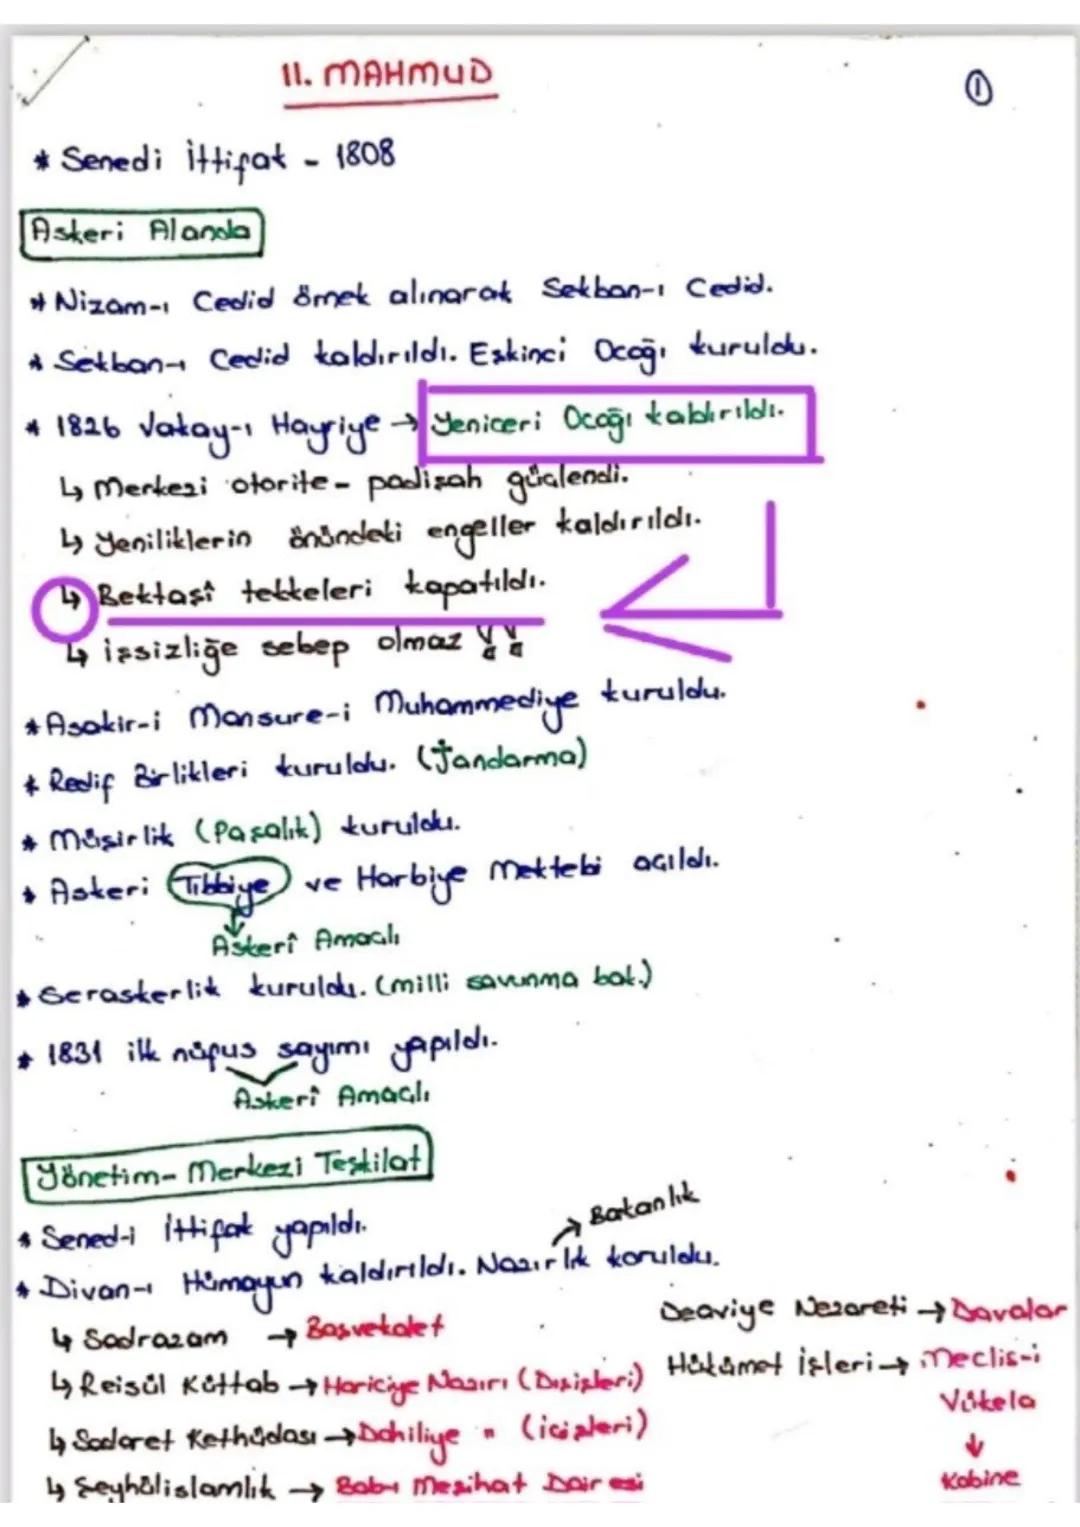 II. MAHMUD
1
* Senedi İttifak - 1808
Askeri Alanda
* Nizam-ı Cedid örnek alınarak Sekban-ı Cedid.
* Sekban-ı Cedid kaldırıldı. Eskinci Ocağı kuruldu.
* 1826 Vakay-ı Hayriye → Yeniçeri Ocağı kaldırıldı.
↳ Merkezi otorite - padişah güçlendi.
↳ Yeniliklerin önündeki engeller kaldırıldı.
↳ Bektaşî tekkeleri kapatıldı.
↳ işsizliğe sebep olmaz !!
* Asakir-i Mansure-i Muhammediye kuruldu.
* Redif Birlikleri kuruldu. (Jandarma)
* Müşirlik (Paşalık) kuruldu.
* Askeri Tıbbiye ve Harbiye Mektebi açıldı.
Askerî Amaçlı
* Seraskerlik kuruldu. (milli savunma bak.)
* 1831 ilk nüfus sayımı yapıldı.
Askerî Amaçlı
Yönetim - Merkezi Teşkilat
* Sened-i İttifak yapıldı.
→ Bakanlık
* Divan-ı Hümayun kaldırıldı. Nazırlık koruldu.
↳ Sadrazam → Başvekalet
↳ Reisül Küttab → Hariciye Nazırı (Dışişleri)
↳ Sadaret Kethüdası → Dahiliye " (içişleri)
↳ Şeyhülislamlık → Bab-ı Meşihat Dairesi
Deaviye Nezareti → Davalar
Hükümet İşleri → Meclis-i
Vükela
↓
Kabine